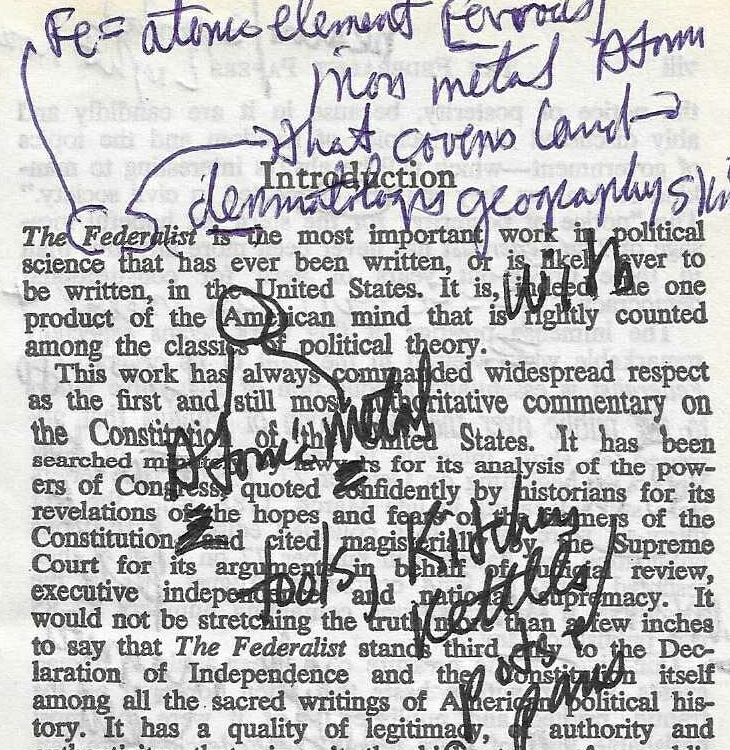 Fe = atomic element
iron metal Atom
that covers land →
Introduction
geography skin
The Federalist is the most important work in political
science that has ever been written, or is likely ever to
be written, in the United States. It is, indeed, the one
product of the American mind that is rightly counted
with
among the classics of political theory.
This work has always commanded widespread respect
as the first and still most authoritative commentary on
metal
the Constitution of the United States. It has been
Atomic
searched minutely by lawyers for its analysis of the pow-
ers of Congress, quoted confidently by historians for its
revelations of the hopes and fears of the framers of the
Constitution, and cited magisterially by the Supreme
Court for its arguments in behalf of judicial review,
tools, Kitchen
executive independence, and national supremacy. It
Kettles
would not be stretching the truth more than a few inches
to say that The Federalist stands third only to the Dec-
pots &
laration of Independence and the Constitution itself
pans
among all the sacred writings of American political his-
tory. It has a quality of legitimacy, of authority and